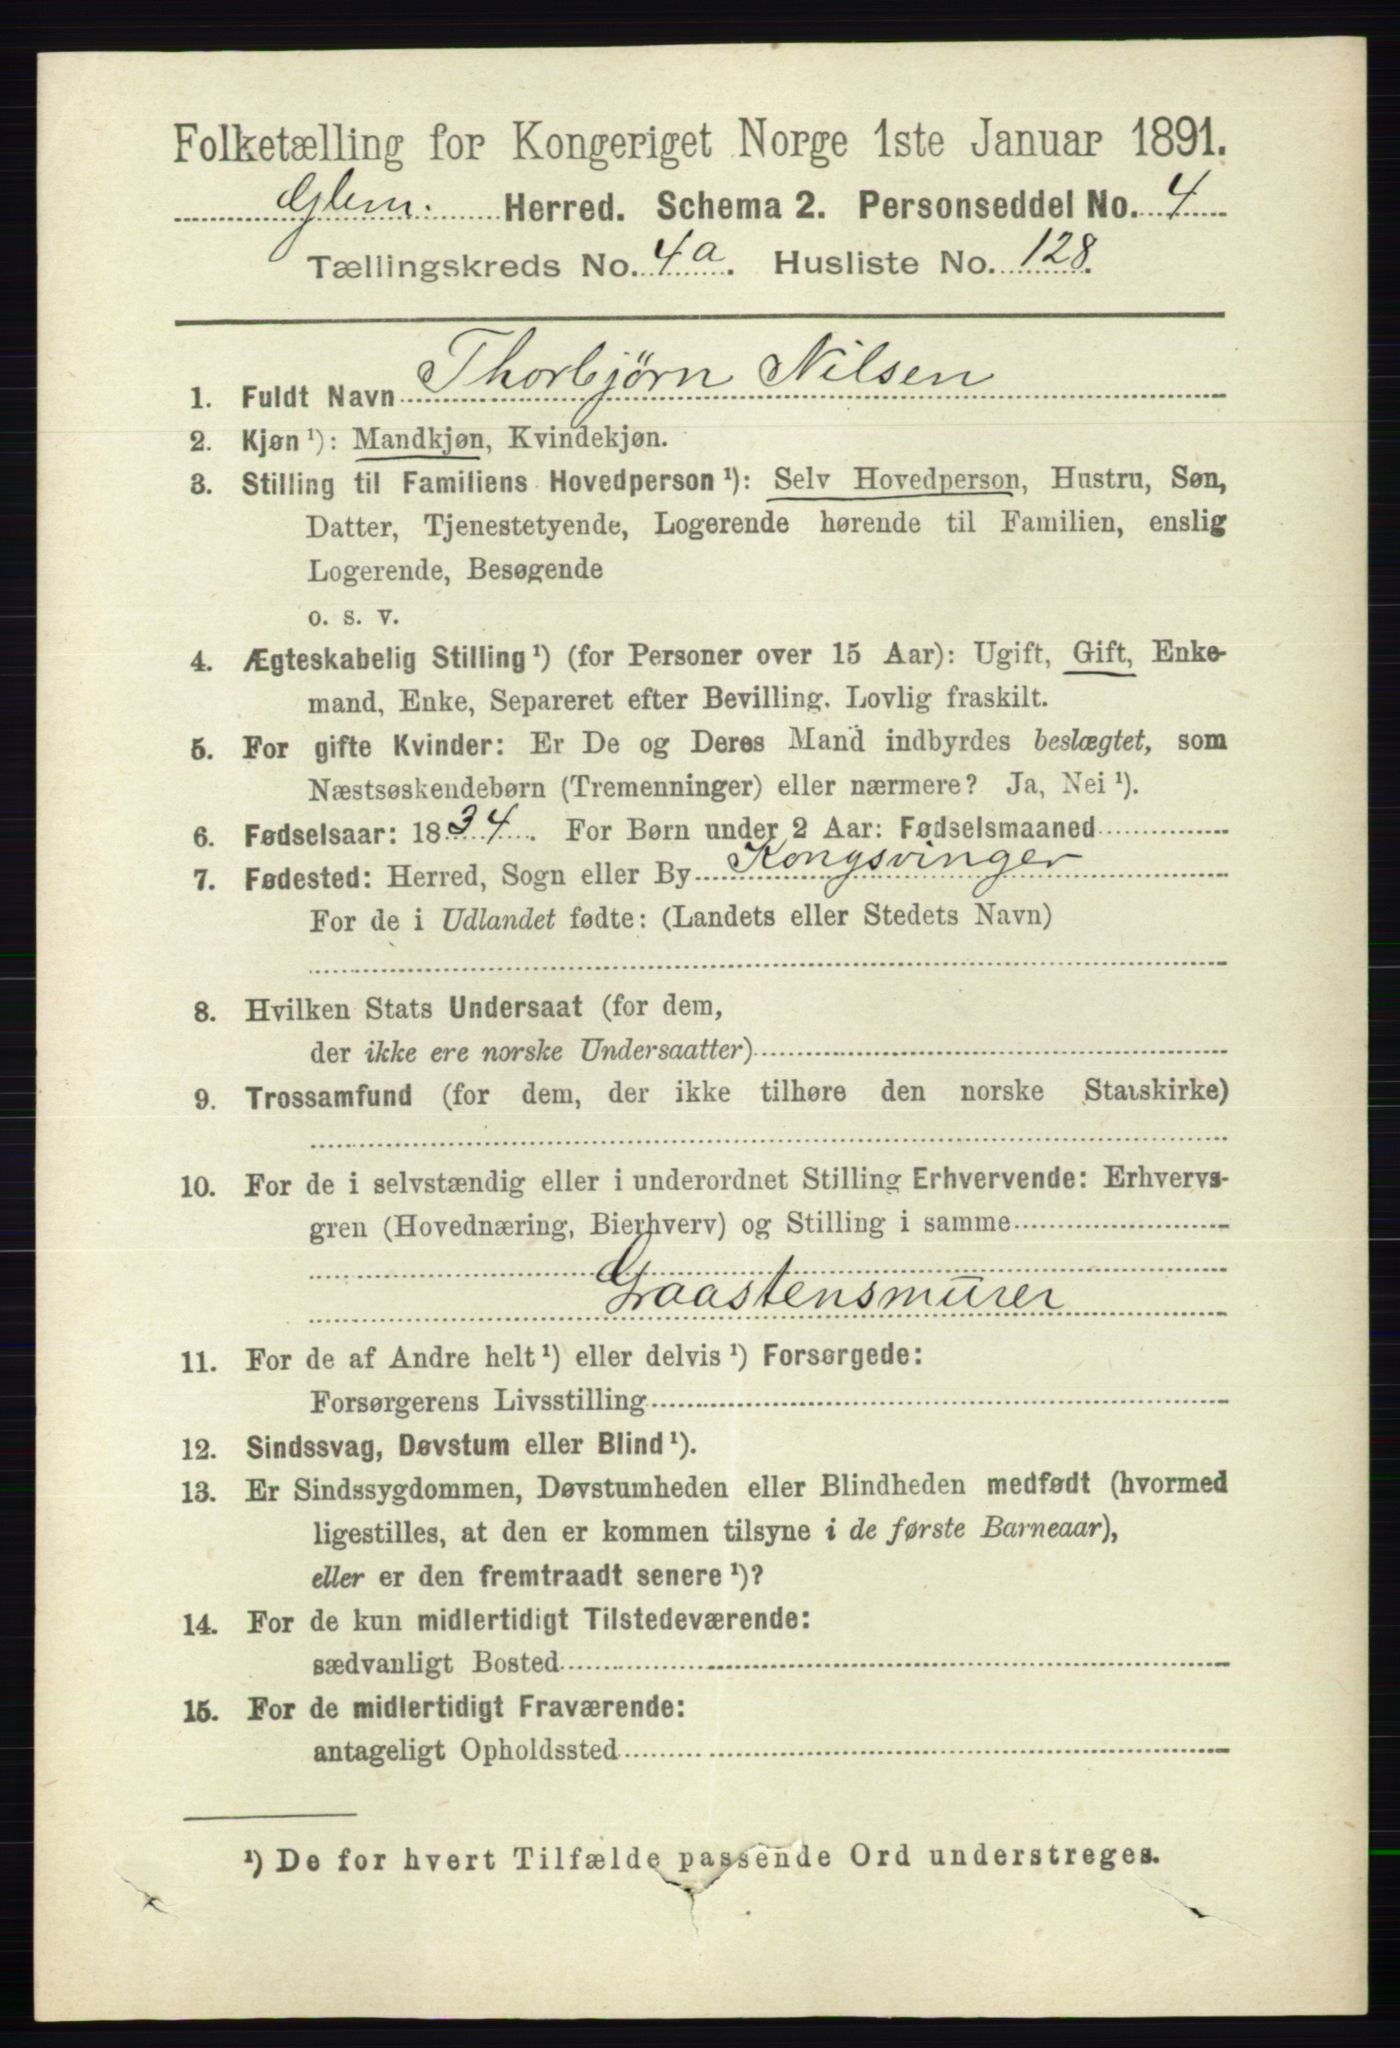 Folketælling for Kongeriget Norge 1ste Januar 1891.
Glem. Herred. Schema 2. Personseddel No. 4
Tællingskreds No. 4a. Husliste No. 128.
1. Fuldt Navn Thorbjørn Nilsen
2. Kjøn¹): Mandkjøn, Kvindekjøn.
3. Stilling til Familiens Hovedperson¹): Selv Hovedperson, Hustru, Søn,
Datter, Tjenestetyende, Logerende hørende til Familien, enslig
Logerende, Besøgende
o. s. v.
4. Ægteskabelig Stilling¹) (for Personer over 15 Aar): Ugift, Gift, Enke-
mand, Enke, Separeret efter Bevilling. Lovlig fraskilt.
5. For gifte Kvinder: Er De og Deres Mand indbyrdes beslægtet, som
Næstsøskendebørn (Tremenninger) eller nærmere? Ja, Nei¹).
6. Fødselsaar: 1834. For Børn under 2 Aar: Fødselsmaaned
7. Fødested: Herred, Sogn eller By Kongsvinger
For de i Udlandet fødte: (Landets eller Stedets Navn)
8. Hvilken Stats Undersaat (for dem,
der ikke ere norske Undersaatter)
9. Trossamfund (for dem, der ikke tilhøre den norske Statskirke)
10. For de i selvstændig eller i underordnet Stilling Erhvervende: Erhvervs-
gren (Hovednæring, Bierhverv) og Stilling i samme
Graastensmurer
11. For de af Andre helt¹) eller delvis¹) Forsørgede:
Forsørgerens Livsstilling
12. Sindssvag, Døvstum eller Blind¹).
13. Er Sindssygdommen, Døvstumheden eller Blindheden medfødt (hvormed
ligestilles, at den er kommen tilsyne i de første Barneaar),
eller er den fremtraadt senere¹)?
14. For de kun midlertidigt Tilstedeværende:
sædvanligt Bosted
15. For de midlertidigt Fraværende:
antageligt Opholdssted
¹) De for hvert Tilfælde passende Ord understreges.